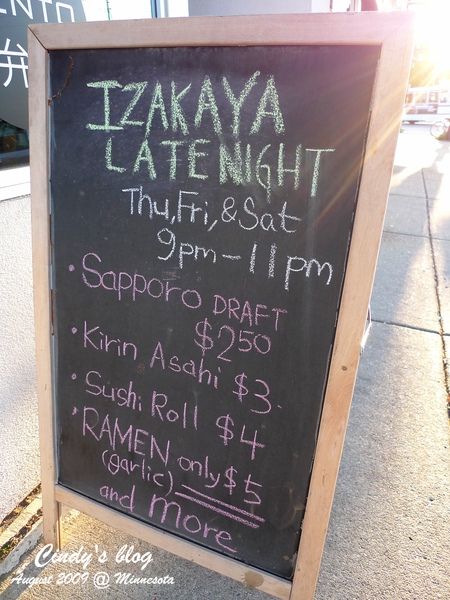 ENTO
弁
IZAKAYA
LATE NIGHT
Thu, Fri, & Sat
9pm - 11pm
• Sapporo DRAFT
$250
• Kirin Asahi $3.
• Sushi Roll $4
• RAMEN only $5
(garlic)
and more
Cindy's blog
August 2009 @ Minnesota